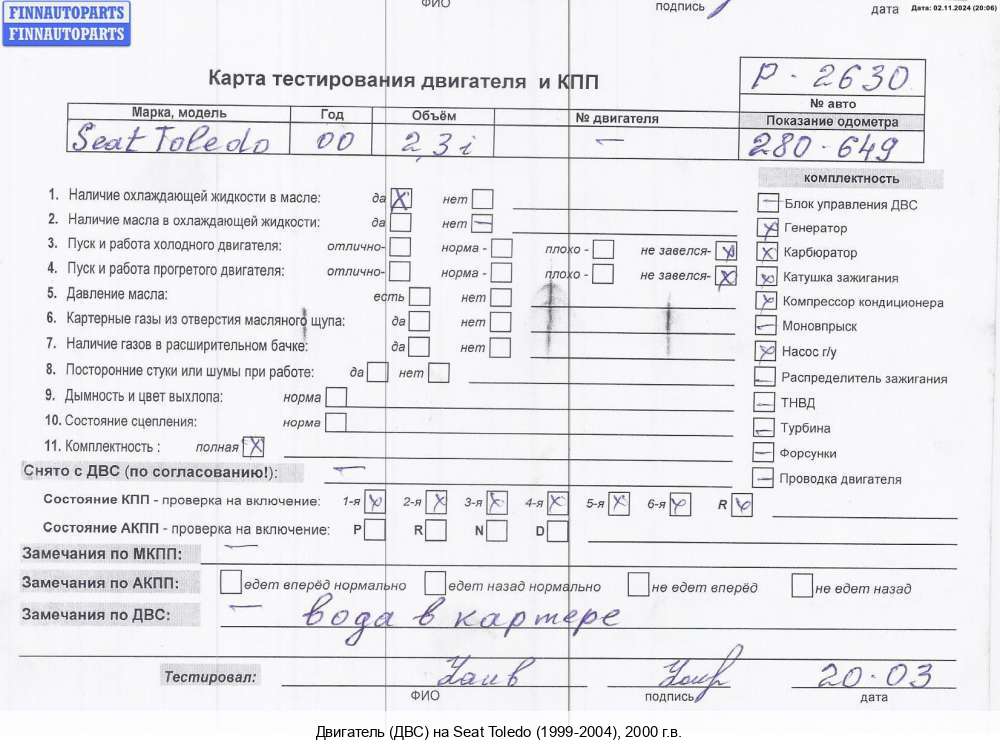 FINNAUTOPARTS
FINNAUTOPARTS
ФИО подпись дата Дата: 02.11.2024 (20:06)
Карта тестирования двигателя и КПП
P - 2630
№ авто
Марка, модель Год Объём № двигателя Показание одометра
Seat Toledo 00 2,3i — 280-649
комплектность
1. Наличие охлаждающей жидкости в масле: да X нет
Блок управления ДВС
2. Наличие масла в охлаждающей жидкости: да нет —
Генератор
3. Пуск и работа холодного двигателя: отлично- норма - плохо - не завелся- X
Карбюратор
4. Пуск и работа прогретого двигателя: отлично- норма - плохо - не завелся- X
Катушка зажигания
5. Давление масла: есть нет
Компрессор кондиционера
6. Картерные газы из отверстия масляного щупа: да нет
Моновпрыск
7. Наличие газов в расширительном бачке: да нет
Насос г/у
8. Посторонние стуки или шумы при работе: да нет
Распределитель зажигания
9. Дымность и цвет выхлопа: норма
ТНВД
10. Состояние сцепления: норма
Турбина
11. Комплектность : полная X
Форсунки
Снято с ДВС (по согласованию!): —
Проводка двигателя
Состояние КПП - проверка на включение: 1-я X 2-я X 3-я X 4-я X 5-я X 6-я X R X
Состояние АКПП - проверка на включение: P R N D
Замечания по МКПП: —
Замечания по АКПП: едет вперёд нормально едет назад нормально не едет вперёд не едет назад
Замечания по ДВС: — вода в картере
Тестировал: 20-03
ФИО подпись дата
Двигатель (ДВС) на Seat Toledo (1999-2004), 2000 г.в.